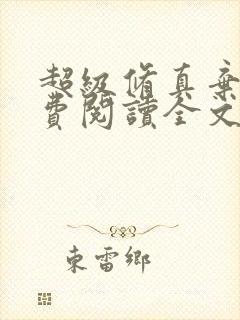 超级修真棄
費閱讀全文
東雷鄉